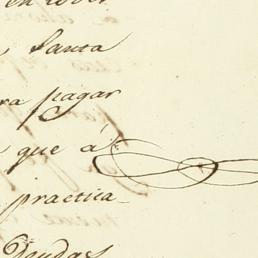 en
Santa
ra pagar
que á
practica-
Deudas